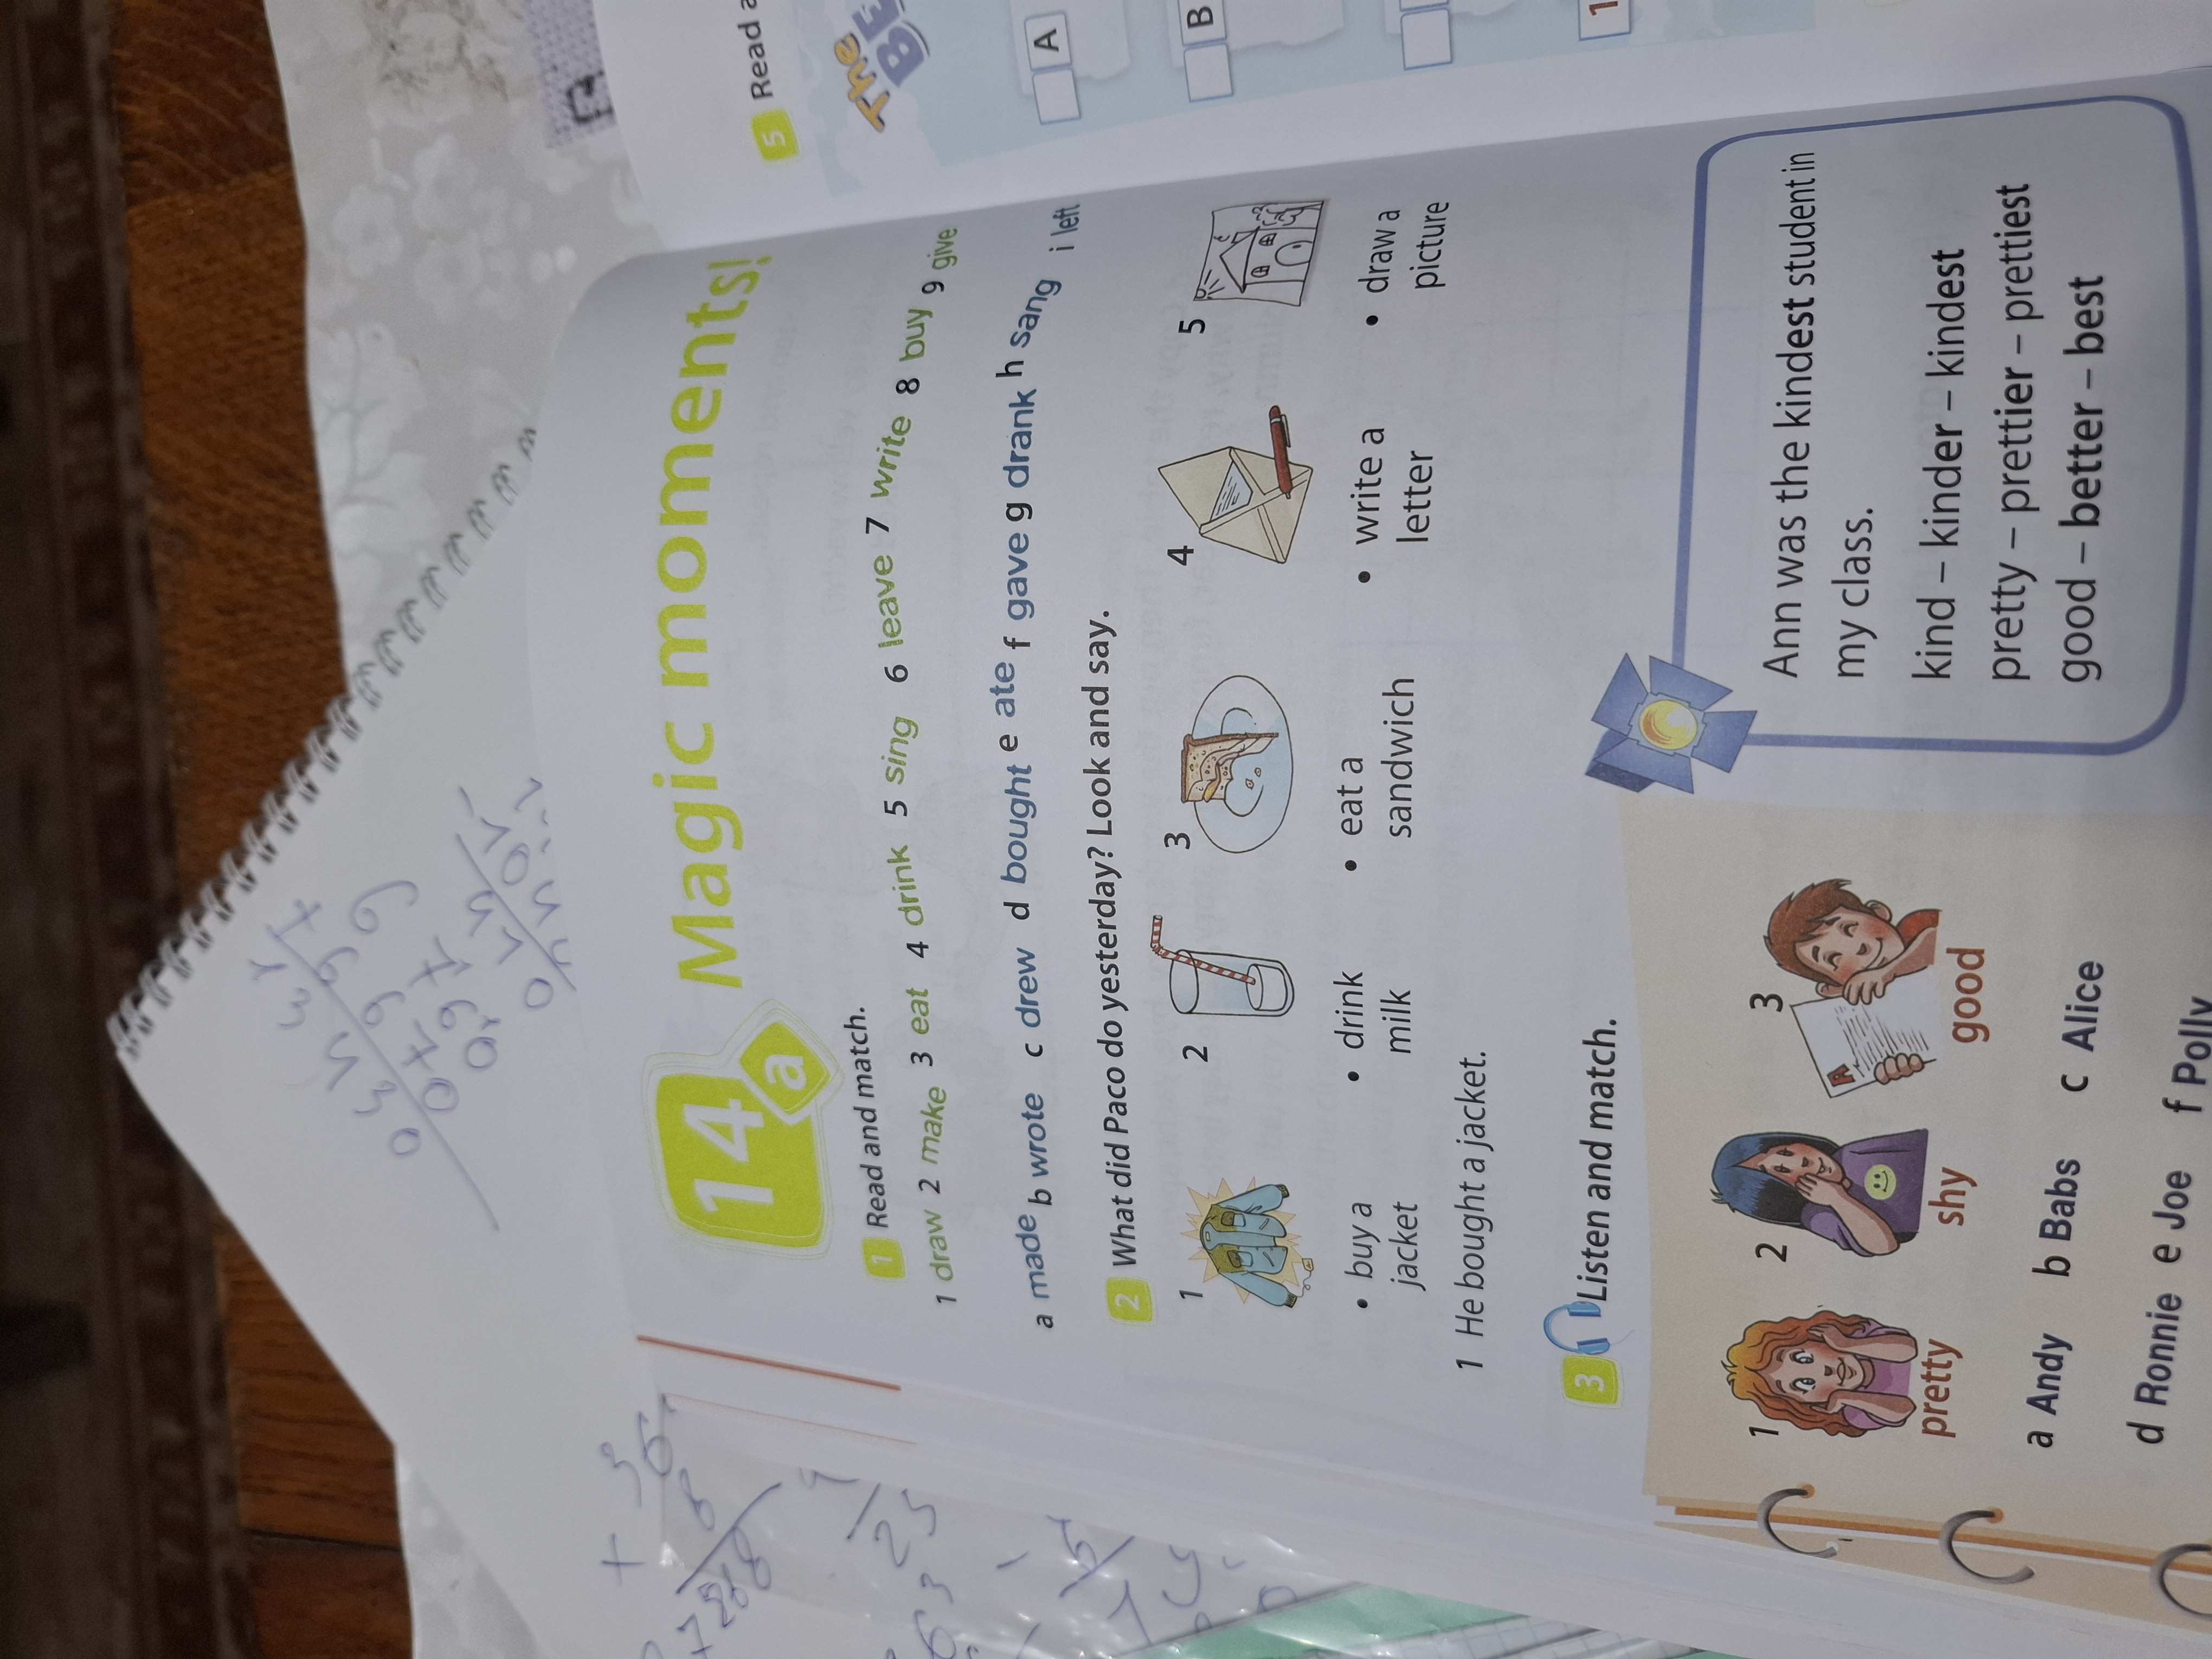 14 a Magic moments!
1 Read and match.
1 draw 2 make 3 eat 4 drink 5 sing 6 leave 7 write 8 buy 9 give
a made b wrote c drew d bought e ate f gave g drank h sang i left
2 What did Paco do yesterday? Look and say.
1 2 3 4 5
• buy a jacket
• drink milk
• eat a sandwich
• write a letter
• draw a picture
1 He bought a jacket.
3 Listen and match.
1 2 3
A
pretty shy good
a Andy b Babs c Alice
d Ronnie e Joe f Polly
Ann was the kindest student in
my class.
kind – kinder – kindest
pretty – prettier – prettiest
good – better – best
5 Read
The
A
B
1